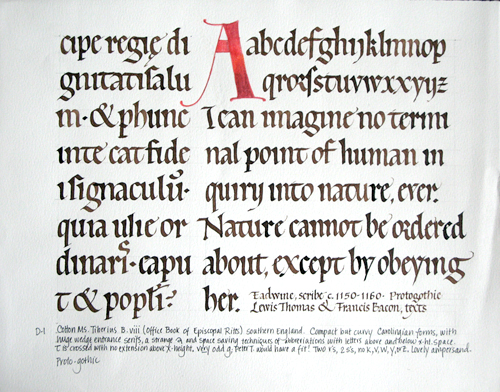 cipe regię di
gnitatiſ alu
m·& phunc
inte cat fide
i ſignaculū·
quia ulie or
dinari· capu
t & popli
A abcdefghijklmnop
I can imagine no termi
nal point of human in
quiry into nature, ever.
Nature cannot be ordered
about, except by obeying
her. Eadwine, scribe c. 1150-1160· Protogothic
Lewis Thomas & Francis Bacon, texts
D-1 Cotton Ms. Tiberius B. viii (Office Book of Episcopal Rites) southern England. Compact but curvy Carolingian forms, with
huge wedge entrance serifs, a strange a, and space saving techniques of abbreviations with letters above and below x-ht. space.
T is crossed with no extension above x-height, very odd g, Peter T. would have a fit! Two r's, 2 s's, no k, v, w, y, or z. Lovely ampersand.
Proto-gothic